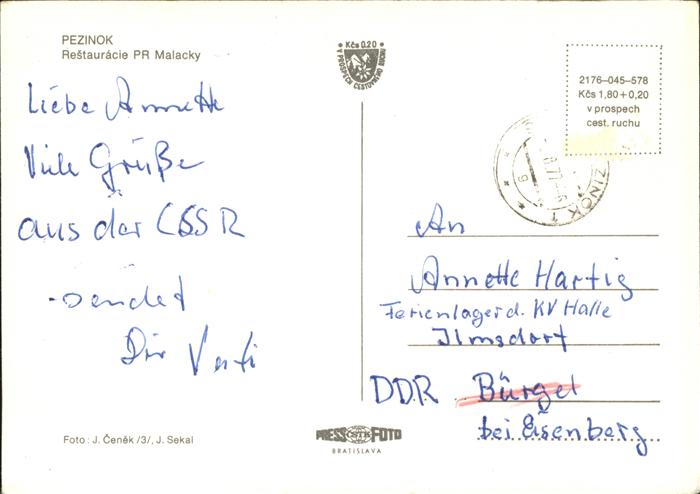 PEZINOK
Reštaurácie PR Malacky
Liebe Annette
Viele Grüße
aus der ČSSR
sendet
Dir Vati
Foto: J. Čeněk /3/, J. Sekal
Kčs 0,20
V PROSPECH CESTOVNÉHO RUCHU
PRESS ČSTK FOTO
BRATISLAVA
2176-045-578
Kčs 1,80+0,20
v prospech
cest. ruchu
An
Annette Hartig
Ferienlager d. KV Halle
Ilmsdorf
DDR Bürgel
bei Eisenberg